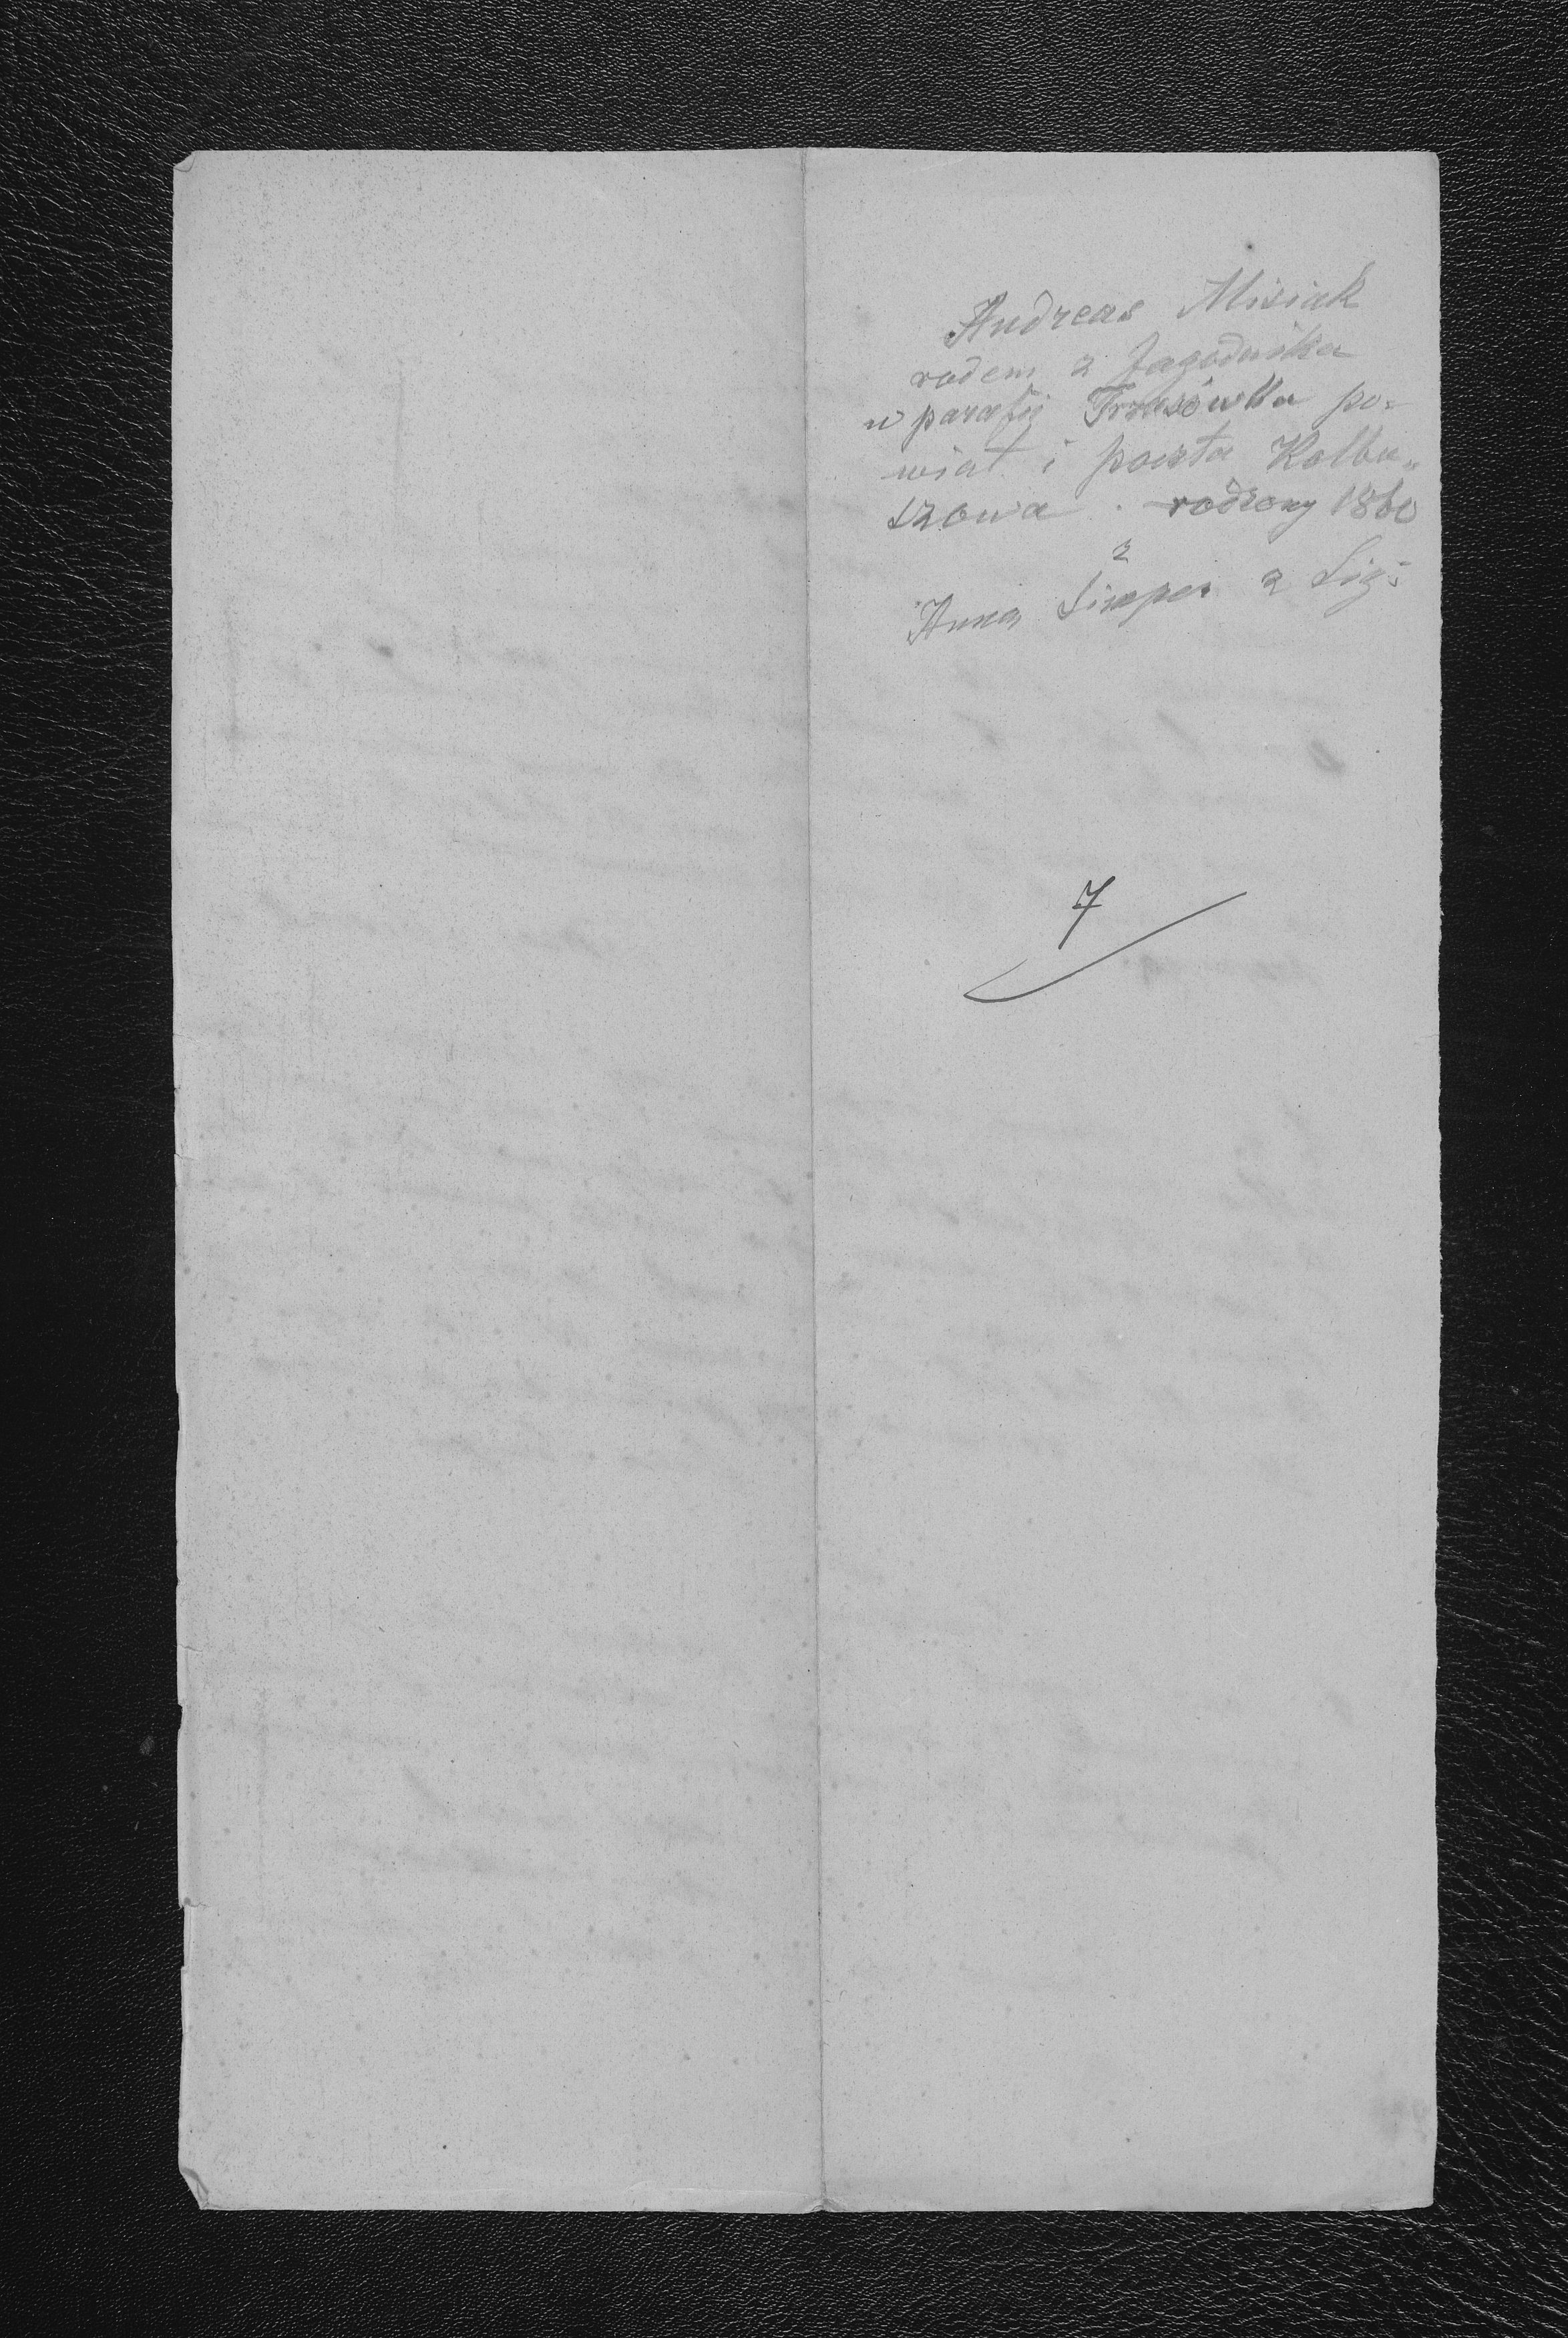 Andreas Misiak
rodem z Jagodnika
w parafij Trzesówka po=
wiat i poczta Kolbu„
szowa . rodzony 1860
z
Anna z
7